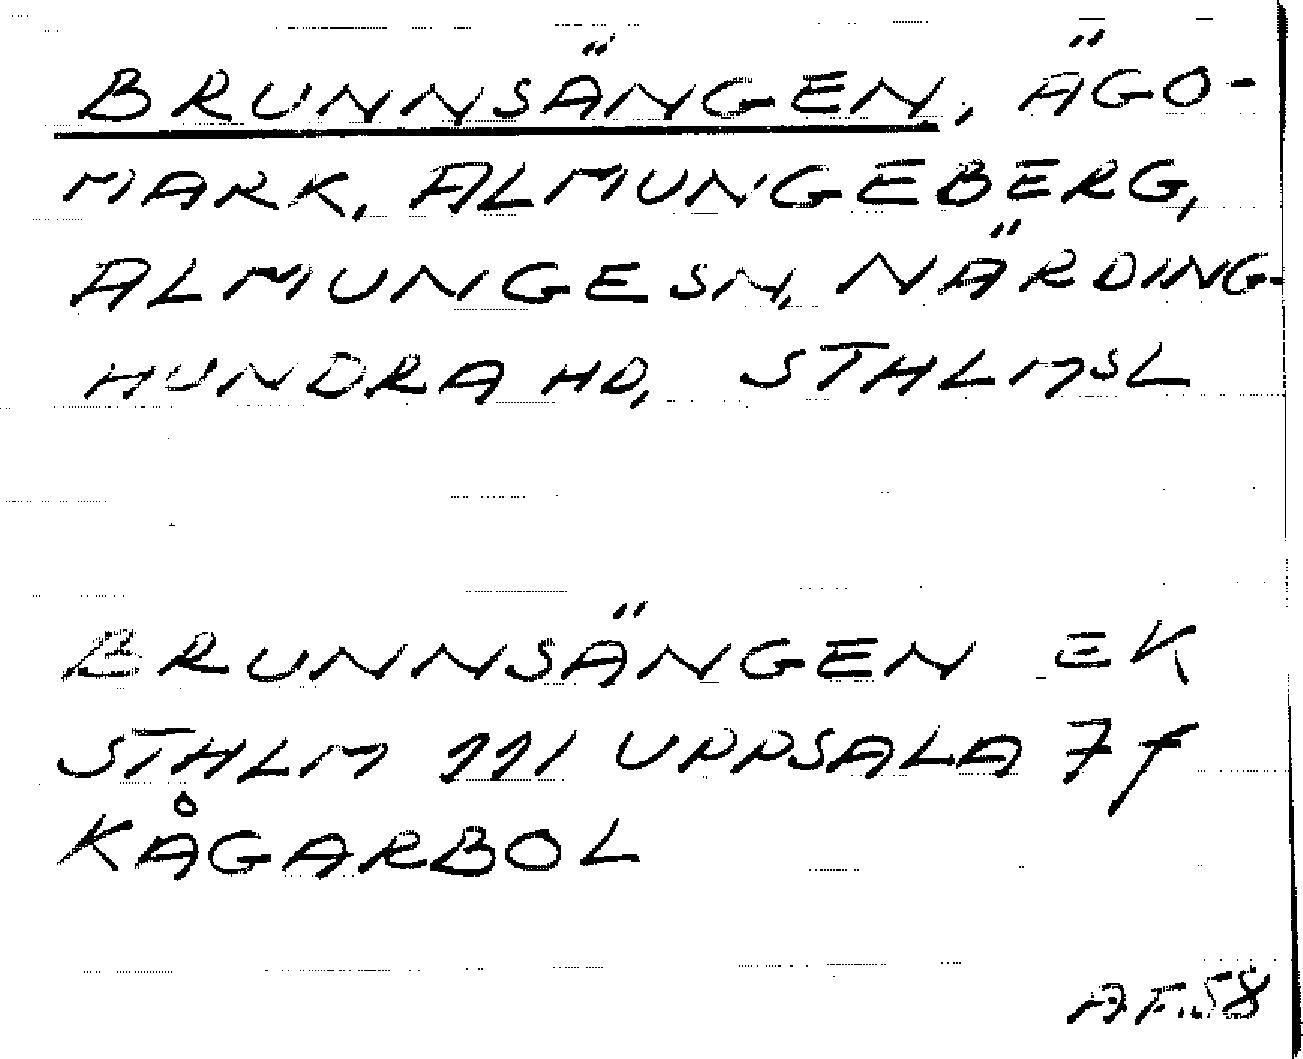 BRUNNSÄNGEN, ÄGO-
MARK, ALMUNGEBERG,
ALMUNGE SN, NÄRDING-
HUNDRA HD, STHLMSL
BRUNNSÄNGEN EK
STHLM 111 UPPSALA 7 f
KÅGARBOL
AF.58